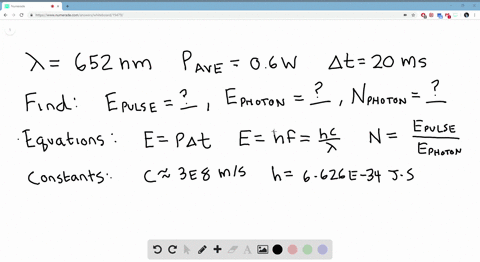 λ = 652 nm P_AVE = 0.6W Δt = 20 ms
Find: E_PULSE = ?, E_PHOTON = ?, N_PHOTON = ?
Equations: E = PΔt E = hf = hc/λ N = E_PULSE/E_PHOTON
Constants: C ≈ 3E8 m/s h = 6.626E-34 J·S